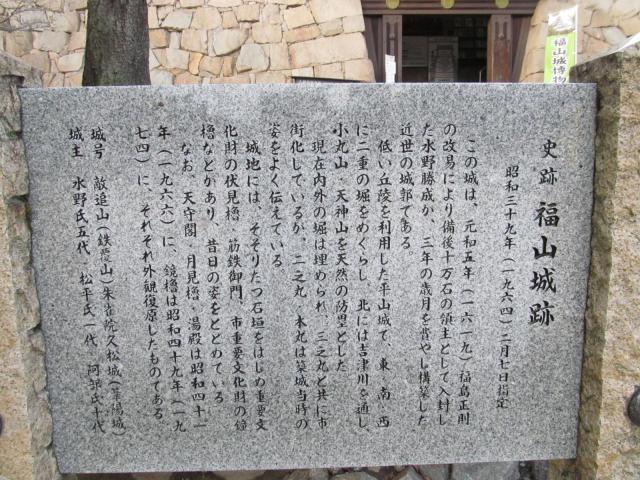 史跡 福山城跡
昭和三十九年(一九六四)二月七日指定
この城は、元和五年(一六一九)福島正則
の改易により備後十万石の領主として入封し
た水野勝成が、三年の歳月を費やし構築した
近世の城郭である。
低い丘陵を利用した平山城で、東 南 西
に二重の堀をめぐらし、北には吉津川を通し、
小丸山 天神山を天然の防塁とした
現在内外の堀は埋められ、三之丸と共に市
街化しているが、二之丸 本丸は築城当時の
姿をよく伝えている
城地には、そそりたつ石垣をはじめ重要文
化財の伏見櫓、筋鉄御門、市重要文化財の鐘
櫓などがあり、昔日の姿をとどめている
なお、天守閣、月見櫓・湯殿は昭和四十一
年(一九六六)に、鏡櫓は昭和四十九年(一九
七四)に、それぞれ外観復原したものである
城号 敵追山(鉄覆山)朱雀院久松城(葦陽城)
城主 水野氏五代 松平氏一代 阿部氏十代
福山城博物